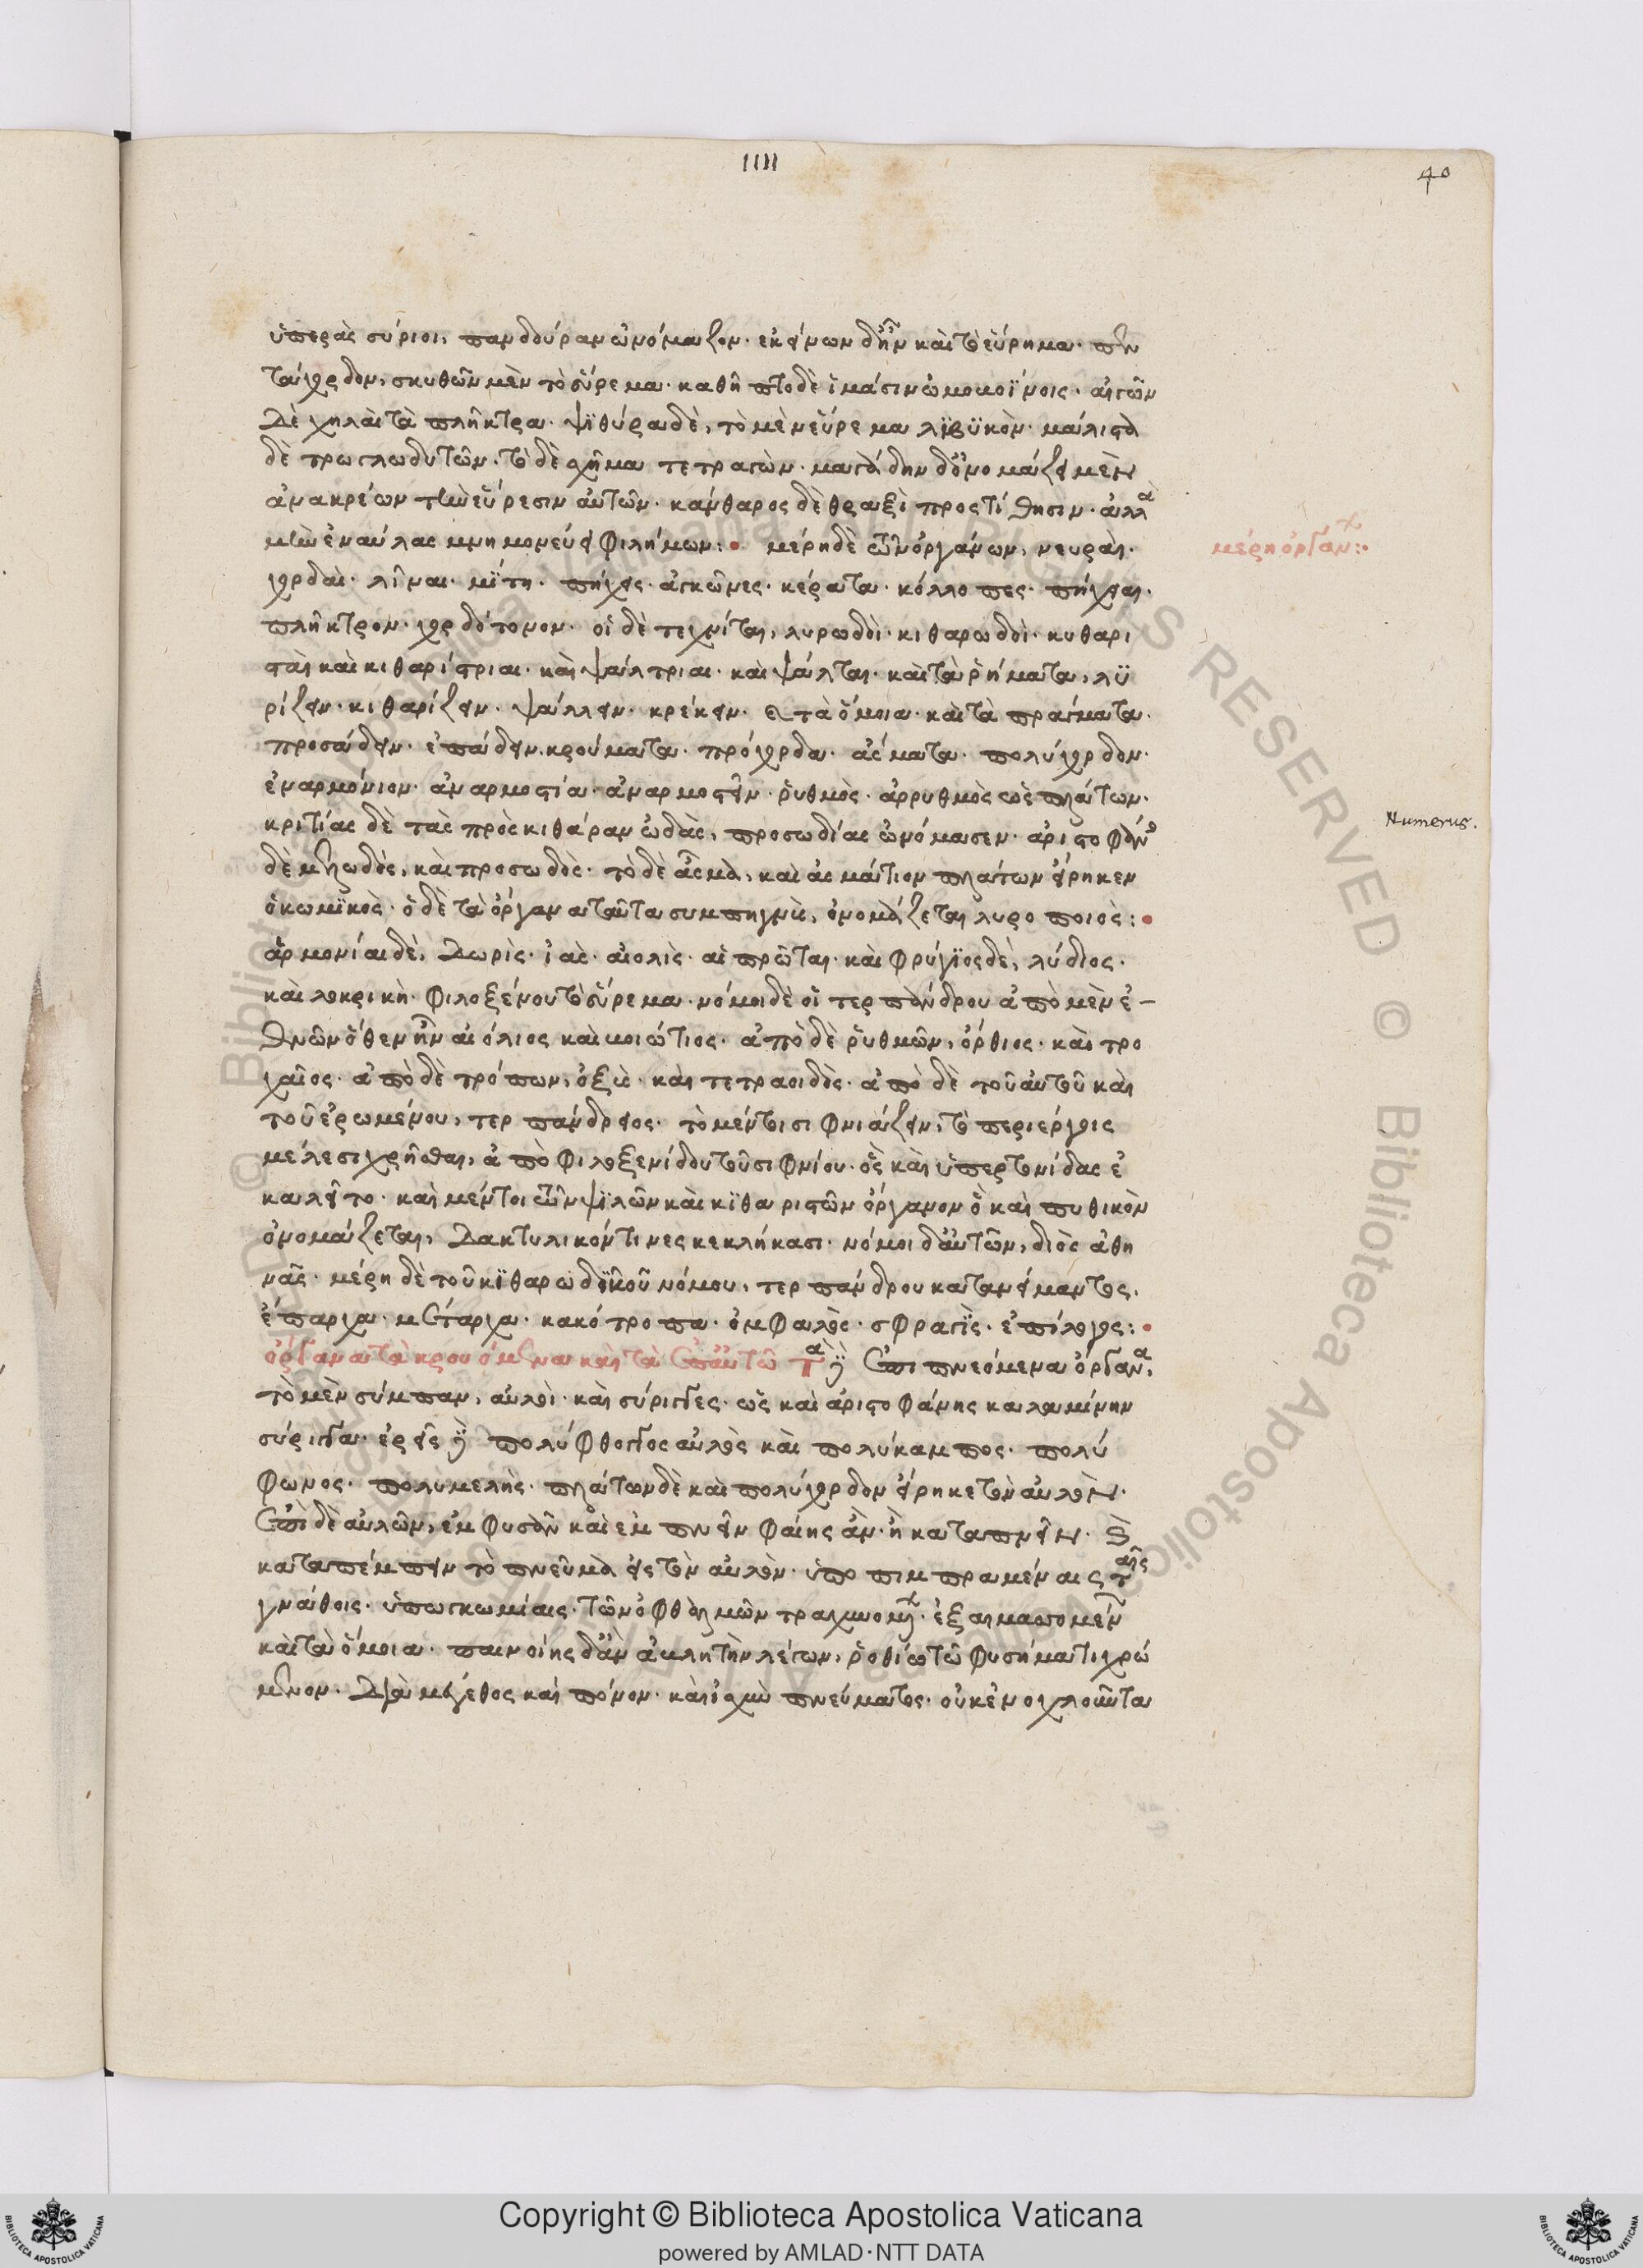 IIII
40
ὑπερας σύριοι, πανδούραν ὠνόμαζον· ἐκείνων δ' ἦν καὶ τὸ εὕρημα· πεν
τάχορδον, σκυθῶν μὲν τὸ εὕρεμα· καθῆπτο δὲ ἱμάσιν ὠμοβοΐνοις· αἰγῶν
δὲ χηλαὶ τὰ πλῆκτρα· ψϊθύρα δέ, τὸ μὲν εὕρεμα λιβϋκὸν· μάλιστα
δὲ τρωγλωδυτῶν· τὸ δὲ σχῆμα τετραγων· μαγάδην δ' ὀνομάζει μὲν
ἀνακρέων τὴν εὕρεσιν αὐτῶν· κάνθαρος δὲ θραξὶ προστίθησιν· ἀλλὰ
μὴν ἐναύλας μνημονεύει φιλήμων:• μέρη δὲ τῶν ὀργάνων, νευραὶ·
μέρη ὀργάν:•
χορδαὶ· λῖναι· μϊτη· πήχεις· ἀγκῶνες· κέρατα· κόλλοπες· πήχεαι·
πλῆκτρον· χορδότονον· οἱ δὲ τεχνίται, λυρωδοὶ· κιθαρωδοὶ· κυθαρι
σταὶ καὶ κιθαρίστριαι· καὶ ψάλτριαι· καὶ ψάλται· καὶ τὰ ῥήματα, λϋ
ρίζειν· κιθαρίζειν· ψάλλειν· κρέκειν· καὶ τὰ ὅμοια· καὶ τὰ πράγματα·
προσάδειν· ἐπάδειν· κρούματα· πρόχορδα· ἄσματα· πολύχορδον·
ἐναρμόνιον· ἀναρμοστία· ἀναρμοστεῖν· ῥυθμὸς· ἀρρυθμὸς ὡς πλάτων·
Numerus.
κριτίας δὲ τὰς πρὸς κιθάραν ὠδὰς, προσωδίας ὠνόμασεν· ἀριστοφάνης
δὲ μελωδός, καὶ προσωδὸς· τὸ δὲ ἆσμα, καὶ ἀσμάτιον πλάτων εἴρηκεν
ὁ κωμϊκὸς· ὁ δὲ τὰ ὄργανα ταῦτα συμπηγνὺς, ὀνομάζεται λυροποιὸς:•
ἁρμονίαι δέ, δωρὶς· ἰὰς· αἰολὶς· αἱ πρῶται· καὶ φρύγϊος δέ, λύδιος·
καὶ λοκρικὴ· φιλοξένου τὸ εὕρεμα· νόμοι δὲ οἱ τερπάνδρου ἀπὸ μὲν ἐ-
θνῶν ὅθεν ἦν αἰόλιος καὶ βοιώτιος· ἀπὸ δὲ ῥυθμῶν, ὄρθιος· καὶ τρο
χαῖος· ἀπὸ δὲ τρόπων, ὀξὺς· καὶ τετραοιδὸς· ἀπὸ δὲ τοῦ αὐτοῦ καὶ
τοῦ ἐρωμένου, τερπάνδρειος· τὸ μέντοι σιφνιάζειν, τὸ περιέργοις
μέλεσι χρῆσθαι, ἀπὸ φιλοξενίδου τοῦ σιφνίου· ὃς καὶ ὑπερτονίδας ἐ
καλεῖτο· καὶ μέντοι τῶν ψϊλῶν καὶ κϊθαριστῶν ὄργανον ὃ καὶ πυθικὸν
ὀνομάζεται, δακτυλικόν τινες κεκλήκασι· νόμοι δ' αὐτῶν, διὸς ἀθη
νᾶς· μέρη δὲ τοῦ κϊθαρωδϊκοῦ νόμου, τερπάνδρου κατανείμαντος,
ἔπαρχα· μέταρχα· κακότροπα· ὀμφαλὸς· σφραγϊς· ἐπίλογος:•
ὄργανα τὰ κρουόμενα καὶ τὰ ἐπ' αὐτῶ τὰ δὲ ἐπιπνεόμενα ὄργανα,
τὸ μὲν σύμπαν, αὐλοὶ· καὶ σύριγγες· ὡς καὶ ἀριστοφάνης καλαμίνην
σύριγγα· ἐρεῖς δὲ πολύφθογγος αὐλὸς καὶ πολύκαμπος· πολύ
φωνος· πολυμελὴς· πλάτων δὲ καὶ πολύχορδον εἴρηκε τὸν αὐλὸν·
ἐπὶ δὲ αὐλῶν, ἐμφυσᾶν καὶ ἐμπνεῖν φαίης ἂν· ἢ καταπνεῖν· καὶ
καταπέμπειν τὸ πνεῦμα εἰς τὸν αὐλὸν· ὑποπιμπραμέναις ταῖς
γνάθοις· ὑπωγκωμέναις· τῶν ὀφθαλμῶν τραχυνομένων· ἐξαιματουμένων
καὶ τὰ ὅμοια· παινοίης δ' ἂν αὐλητὴν λέγων, ῥοθίω τῶ φυσήματι χρώ
μενον· διὰ μέγεθος καὶ πόνον· καὶ ἰσχὺν πνεύματος· οὐκ ἐνοχλοῦντα